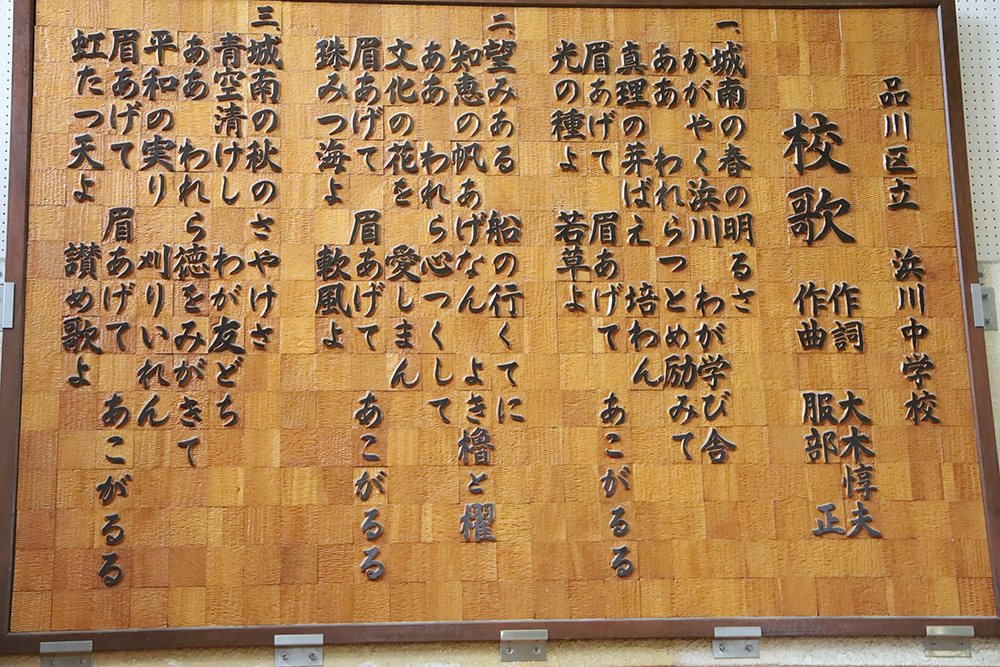 品川区立　浜川中学校
校歌
作詞　大木惇夫
作曲　服部　正
一、城南の春の明るさ
かがやく浜川　わが学び舎
ああ　われらつとめ励みて
真理の芽ばえ　培わん
眉あげて　眉あげて　あこがるる
光の種よ　若草よ
二、望みある　船の行くてに
知恵の帆あげなん　よき櫓と櫂
ああ　われら心つくして
文化の花を　愛しまん
眉あげて　眉あげて　あこがるる
珠みつ海よ　軟風よ
三、城南の秋のさやけさ
青空清けし　わが友どち
ああ　われら徳をみがきて
平和の実り　刈りいれん
眉あげて　眉あげて　あこがるる
虹たつ天よ　讃め歌よ